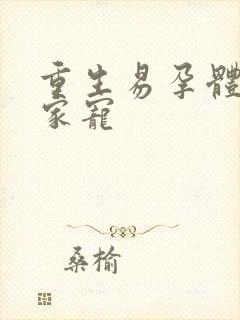 重生易孕體
家寵
桑榆